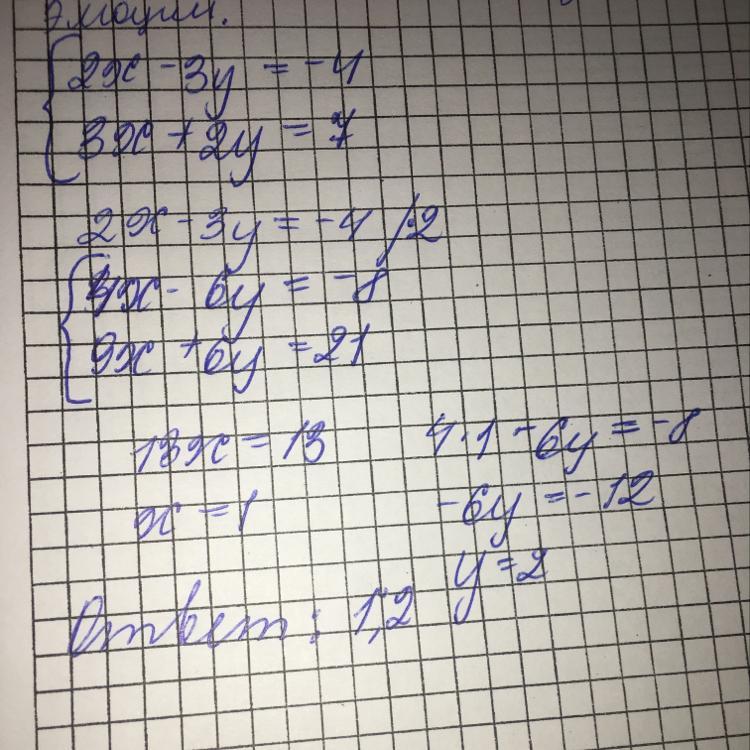 Эмоции.
2x - 3y = -4
3x + 2y = 7
2x - 3y = -4 /·2
4x - 6y = -8
9x + 6y = 21
13x = 13
x = 1
4·1 - 6y = -8
-6y = -12
y = 2
Ответ: 1;2